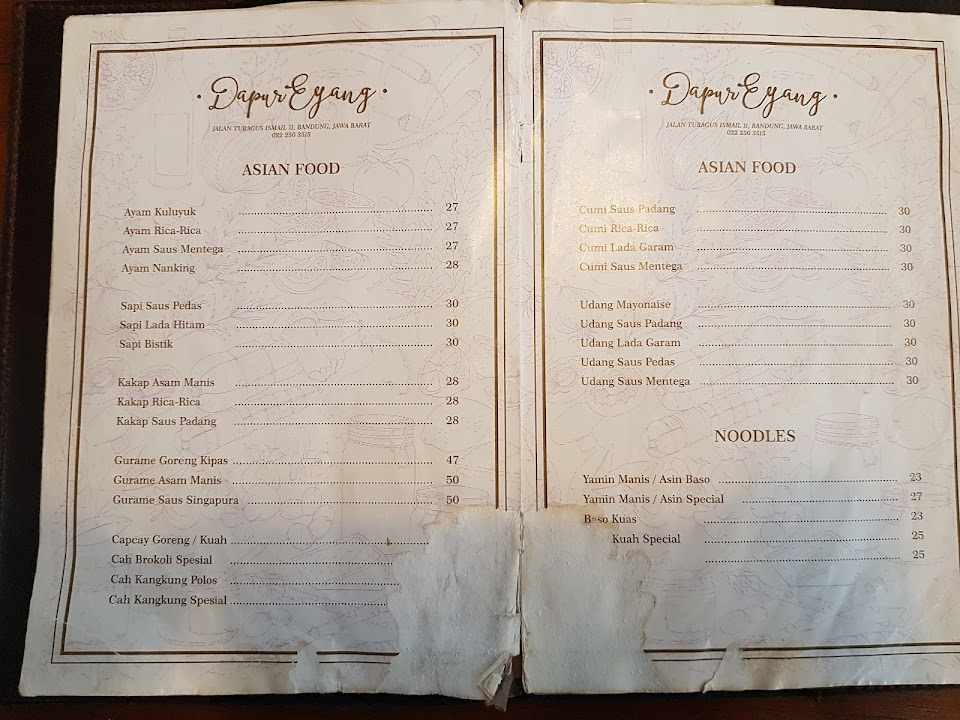 Dapur Eyang
JALAN TUBAGUS ISMAIL II, BANDUNG, JAWA BARAT
022 250 3515
ASIAN FOOD
Ayam Kuluyuk 27
Ayam Rica-Rica 27
Ayam Saus Mentega 27
Ayam Nanking 28
Sapi Saus Pedas 30
Sapi Lada Hitam 30
Sapi Bistik 30
Kakap Asam Manis 28
Kakap Rica-Rica 28
Kakap Saus Padang 28
Gurame Goreng Kipas 47
Gurame Asam Manis 50
Gurame Saus Singapura 50
Capcay Goreng / Kuah
Cah Brokoli Spesial
Cah Kangkung Polos
Cah Kangkung Spesial
Dapur Eyang
JALAN TUBAGUS ISMAIL II, BANDUNG, JAWA BARAT
022 250 3515
ASIAN FOOD
Cumi Saus Padang 30
Cumi Rica-Rica 30
Cumi Lada Garam 30
Cumi Saus Mentega 30
Udang Mayonaise 30
Udang Saus Padang 30
Udang Lada Garam 30
Udang Saus Pedas 30
Udang Saus Mentega 30
NOODLES
Yamin Manis / Asin Baso 23
Yamin Manis / Asin Special 27
Baso Kuas 23
Kuah Special 25
25